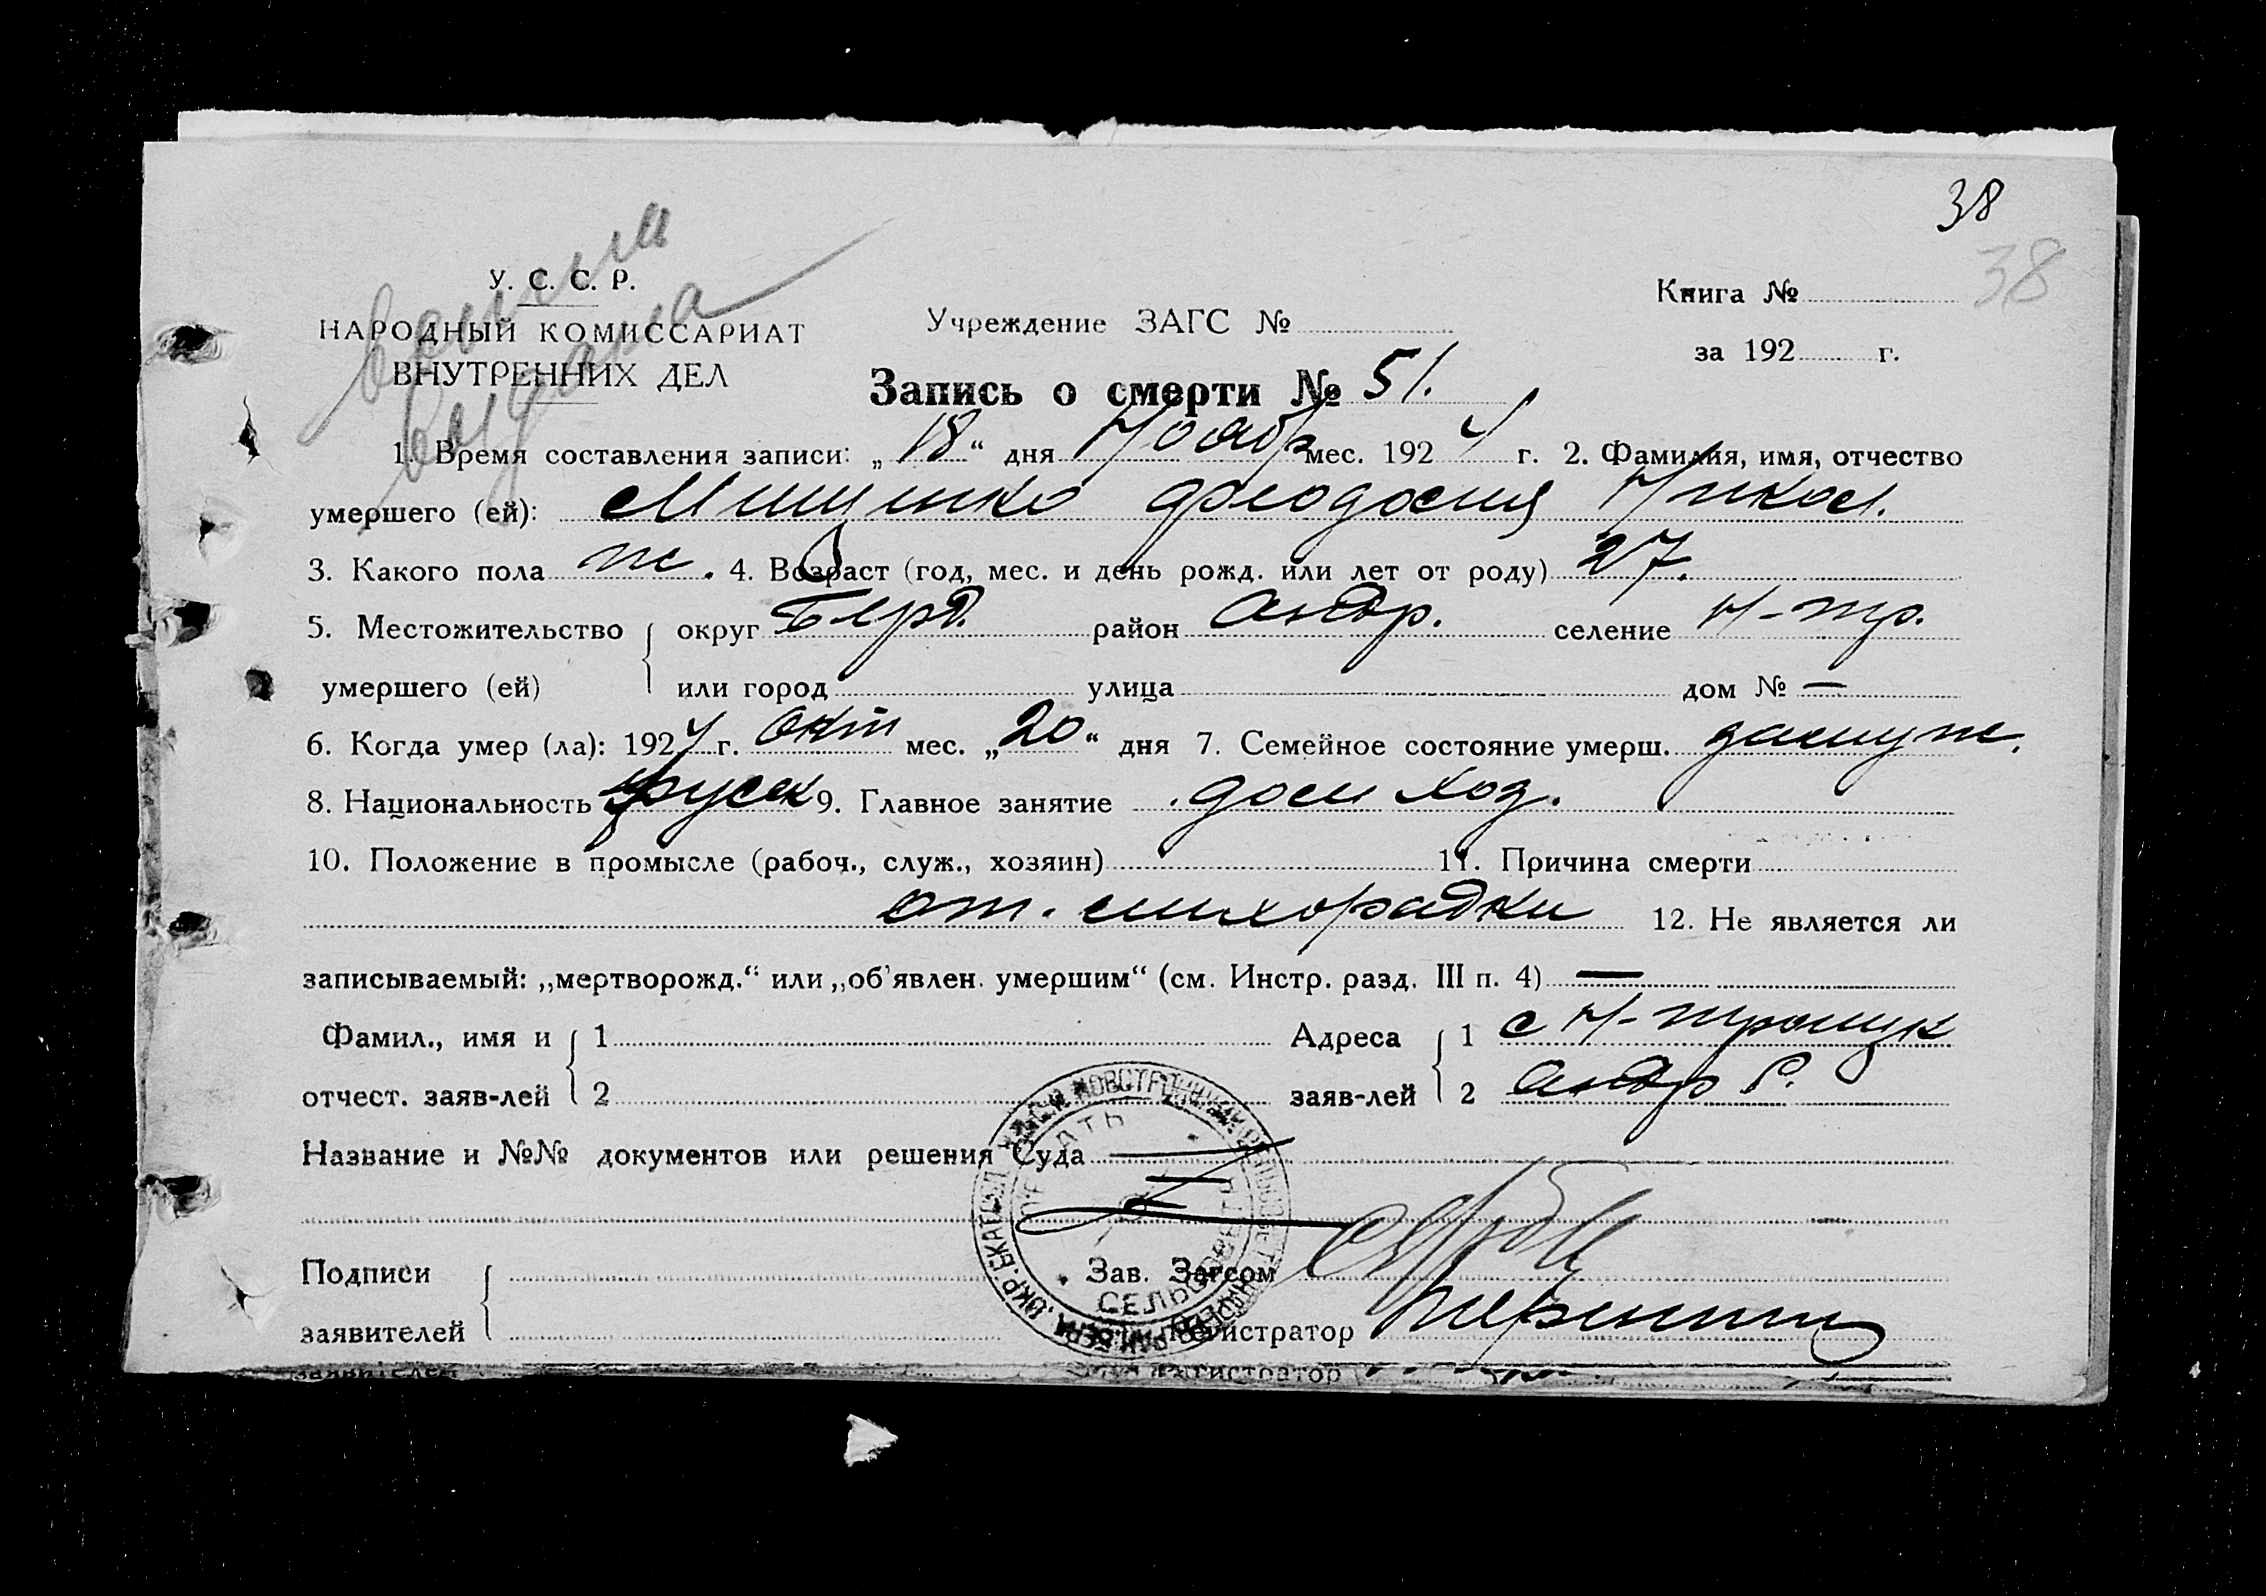 38
38
У. С. С. Р.
НАРОДНЫЙ КОМИССАРИАТ
ВНУТРЕННИХ ДЕЛ
выдана
Учреждение ЗАГС №
Книга №
за 192 г.
Запись о смерти № 51.
1. Время составления записи: „18“ дня Ноабр мес. 1924 г. 2. Фамилия, имя, отчество
умершего (ей): Мищенко Феодосия Никол.
3. Какого пола ж. 4. Возраст (год, мес. и день рожд. или лет от роду) 27.
5. Местожительство округ Берд. район Андр. селение Н-тр.
умершего (ей) или город улица дом № —
6. Когда умер (ла): 1924 г. Окт мес. „20“ дня 7. Семейное состояние умерш. замуж.
8. Национальность русск 9. Главное занятие дом хоз.
10. Положение в промысле (рабоч., служ., хозяин) 11. Причина смерти
от лихорадки 12. Не является ли
записываемый: „мертворожд.“ или „об'явлен. умершим“ (см. Инстр. разд. III п. 4) —
Фамил., имя и 1 Адреса 1 с Н-троицк
отчест. заяв-лей 2 заяв-лей 2 Андр Р.
Название и №№ документов или решения Суда
ПЕЧАТЬ
СЕЛЬСОВЕТА
Подписи Зав. Загсом
заявителей Регистратор
заявителей Регистратор